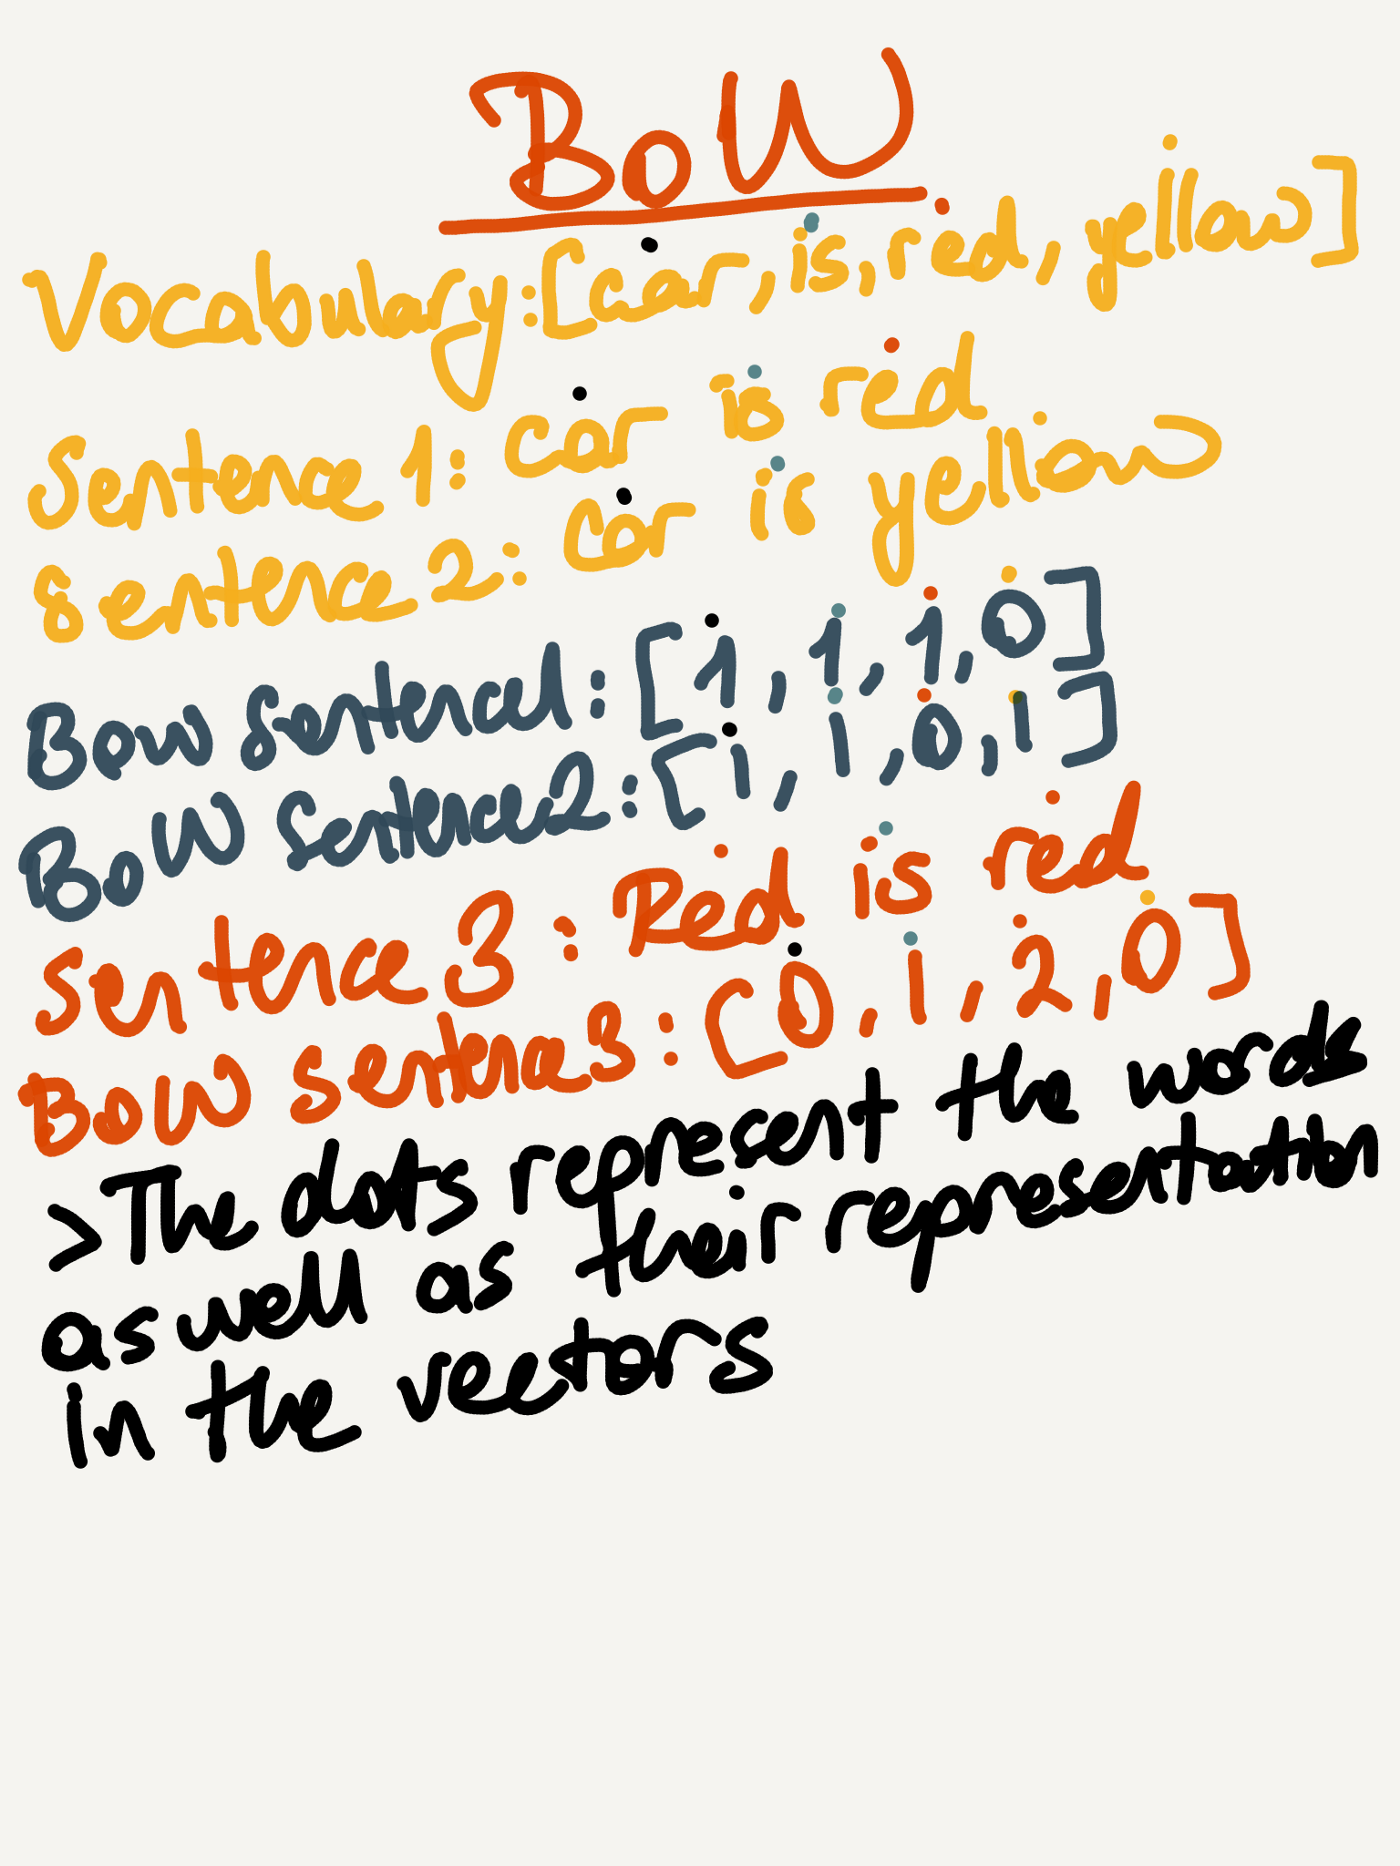 BoW
Vocabulary:[car, is, red, yellow]
Sentence 1: car is red
Sentence 2: car is yellow
BoW Sentence1: [1, 1, 1, 0]
BoW Sentence2: [1, 1, 0, 1]
Sentence 3: Red is red
BoW Sentence3: [0, 1, 2, 0]
>The dots represent the words
as well as their representation
in the vectors